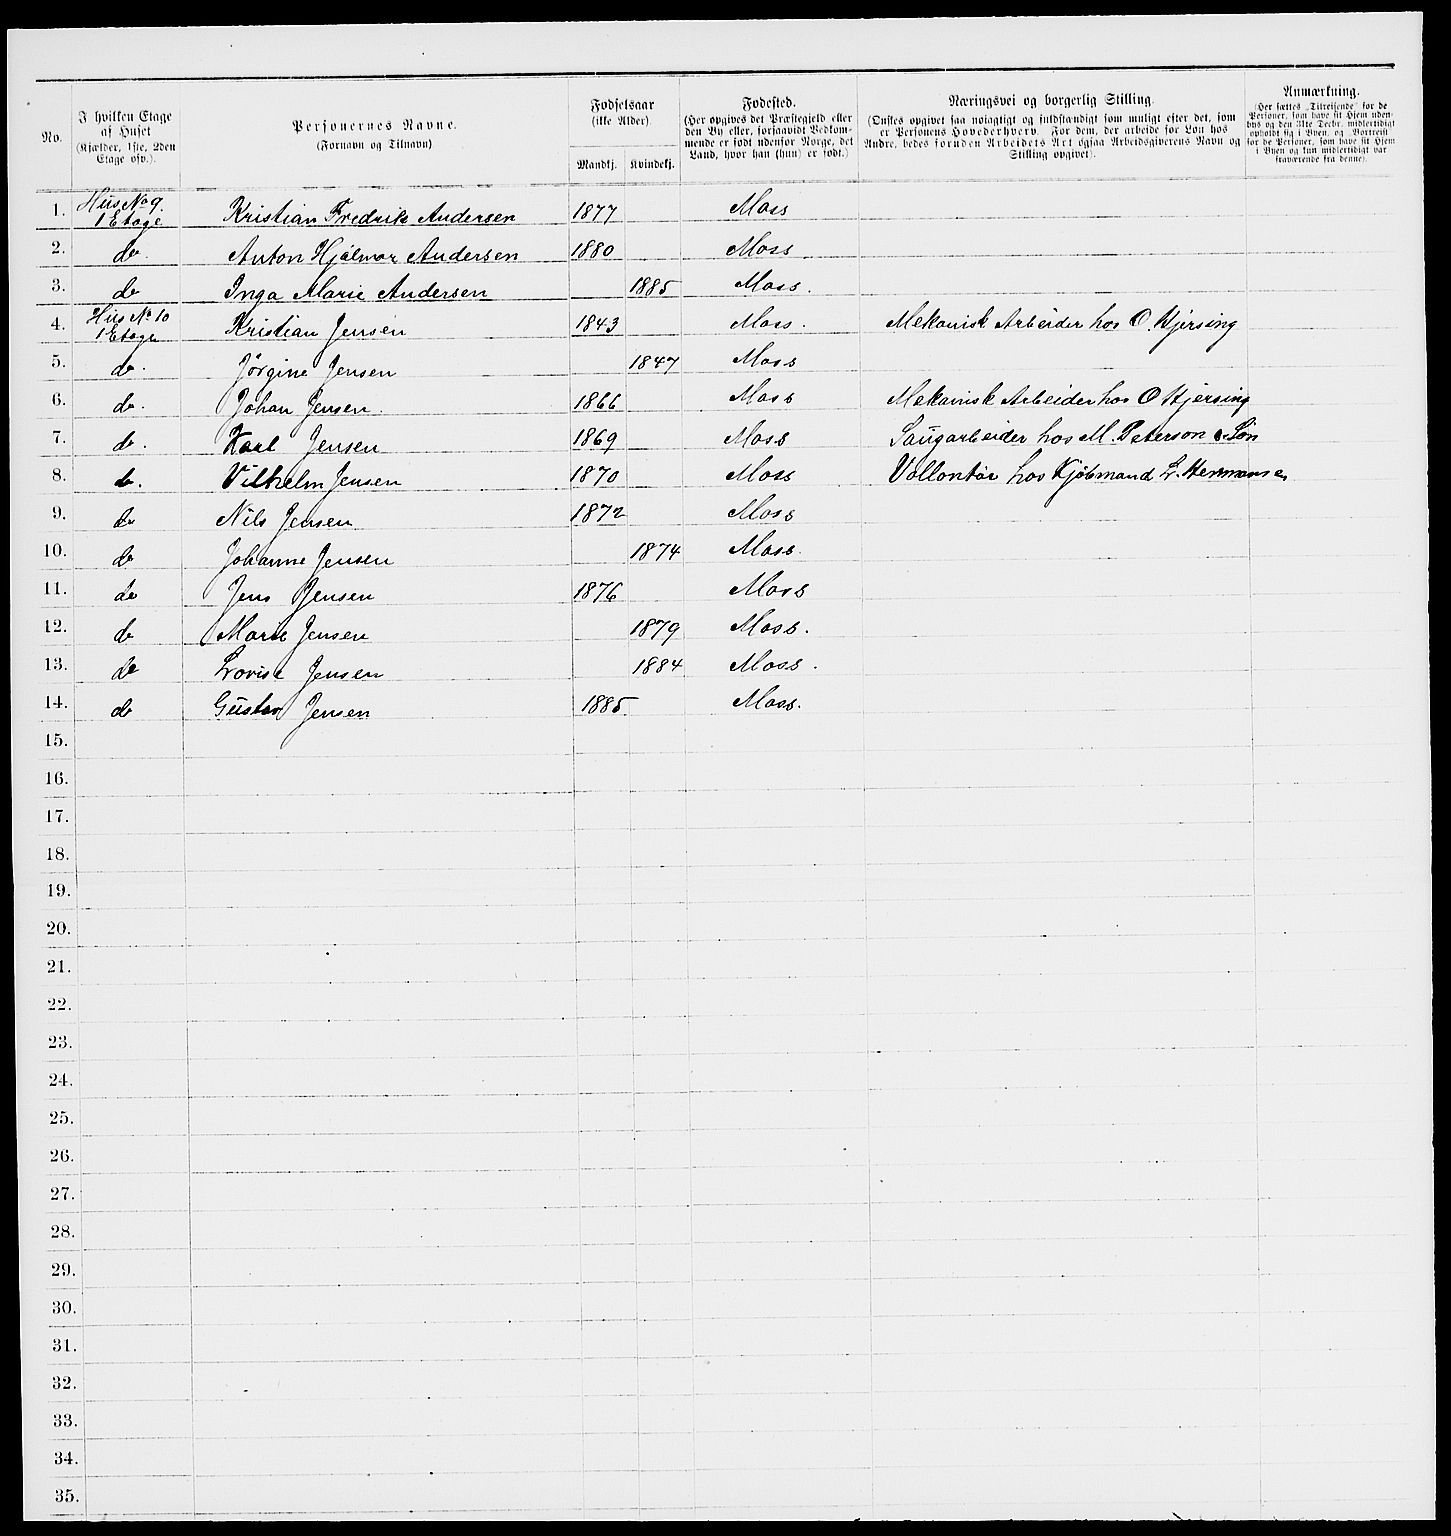 No.
I hvilken Etage af Huset
(Kjælder, 1ste, 2den Etage osv.).
Personernes Navne.
(Fornavn og Tilnavn)
Fødselsaar
(ikke Alder).
Mandkj.
Kvindekj.
Fødested.
(Her opgives det Præstegjeld eller
den By eller, forsaavidt Vedkom-
mende er født udenfor Norge, det
Land, hvor han (hun) er født.)
Næringsvei og borgerlig Stilling.
(Ønskes opgivet saa nøiagtigt og fuldstændigt som muligt efter det, som
er Personens Hovederhverv. For dem, der arbeide for Løn hos
Andre, bedes foruden Arbeidets Art ogsaa Arbeidsgiverens Navn og
Stilling opgivet).
Anmærkning.
(Her sættes „Tilreisende“ for de
Personer, som have sit Hjem uden-
bys og den 31te Decbr. midlertidigt
opholdt sig i Byen, og „Bortreist“
for de Personer, som have sit Hjem
i Byen og kun midlertidigt var
fraværende fra denne).
1. Hus No 9. 1 Etage Kristian Fredrik Andersen 1877 Moss
2. do. Anton Hjalmar Andersen 1880 Moss
3. do Inga Marie Andersen 1885 Moss.
4. Hus No 10 1 Etage Kristian Jensen 1843 Moss. Mekanisk Arbeider hos O. Kjersing
5. do. Jörgine Jensen 1847 Moss
6. do. Johan Jensen. 1866 Moss Mekanisk Arbeider hos O Kjersing
7. do. Karl Jensen 1869 Moss Saugarbeider hos M. Peterson & Søn
8. do. Vilhelm Jensen 1870 Moss Vollontør hos Kjöbmand L. Hermansen
9. do Nils Jensen 1872 Moss
10. do Johanne Jensen 1874 Moss.
11. do Jens Jensen 1876 Moss
12. do Marie Jensen 1879 Moss.
13. do Lovise Jensen 1884 Moss.
14. do Gustav Jensen 1885. Moss.
15.
16.
17.
18.
19.
20.
21.
22.
23.
24.
25.
26.
27.
28.
29.
30.
31.
32.
33.
34.
35.